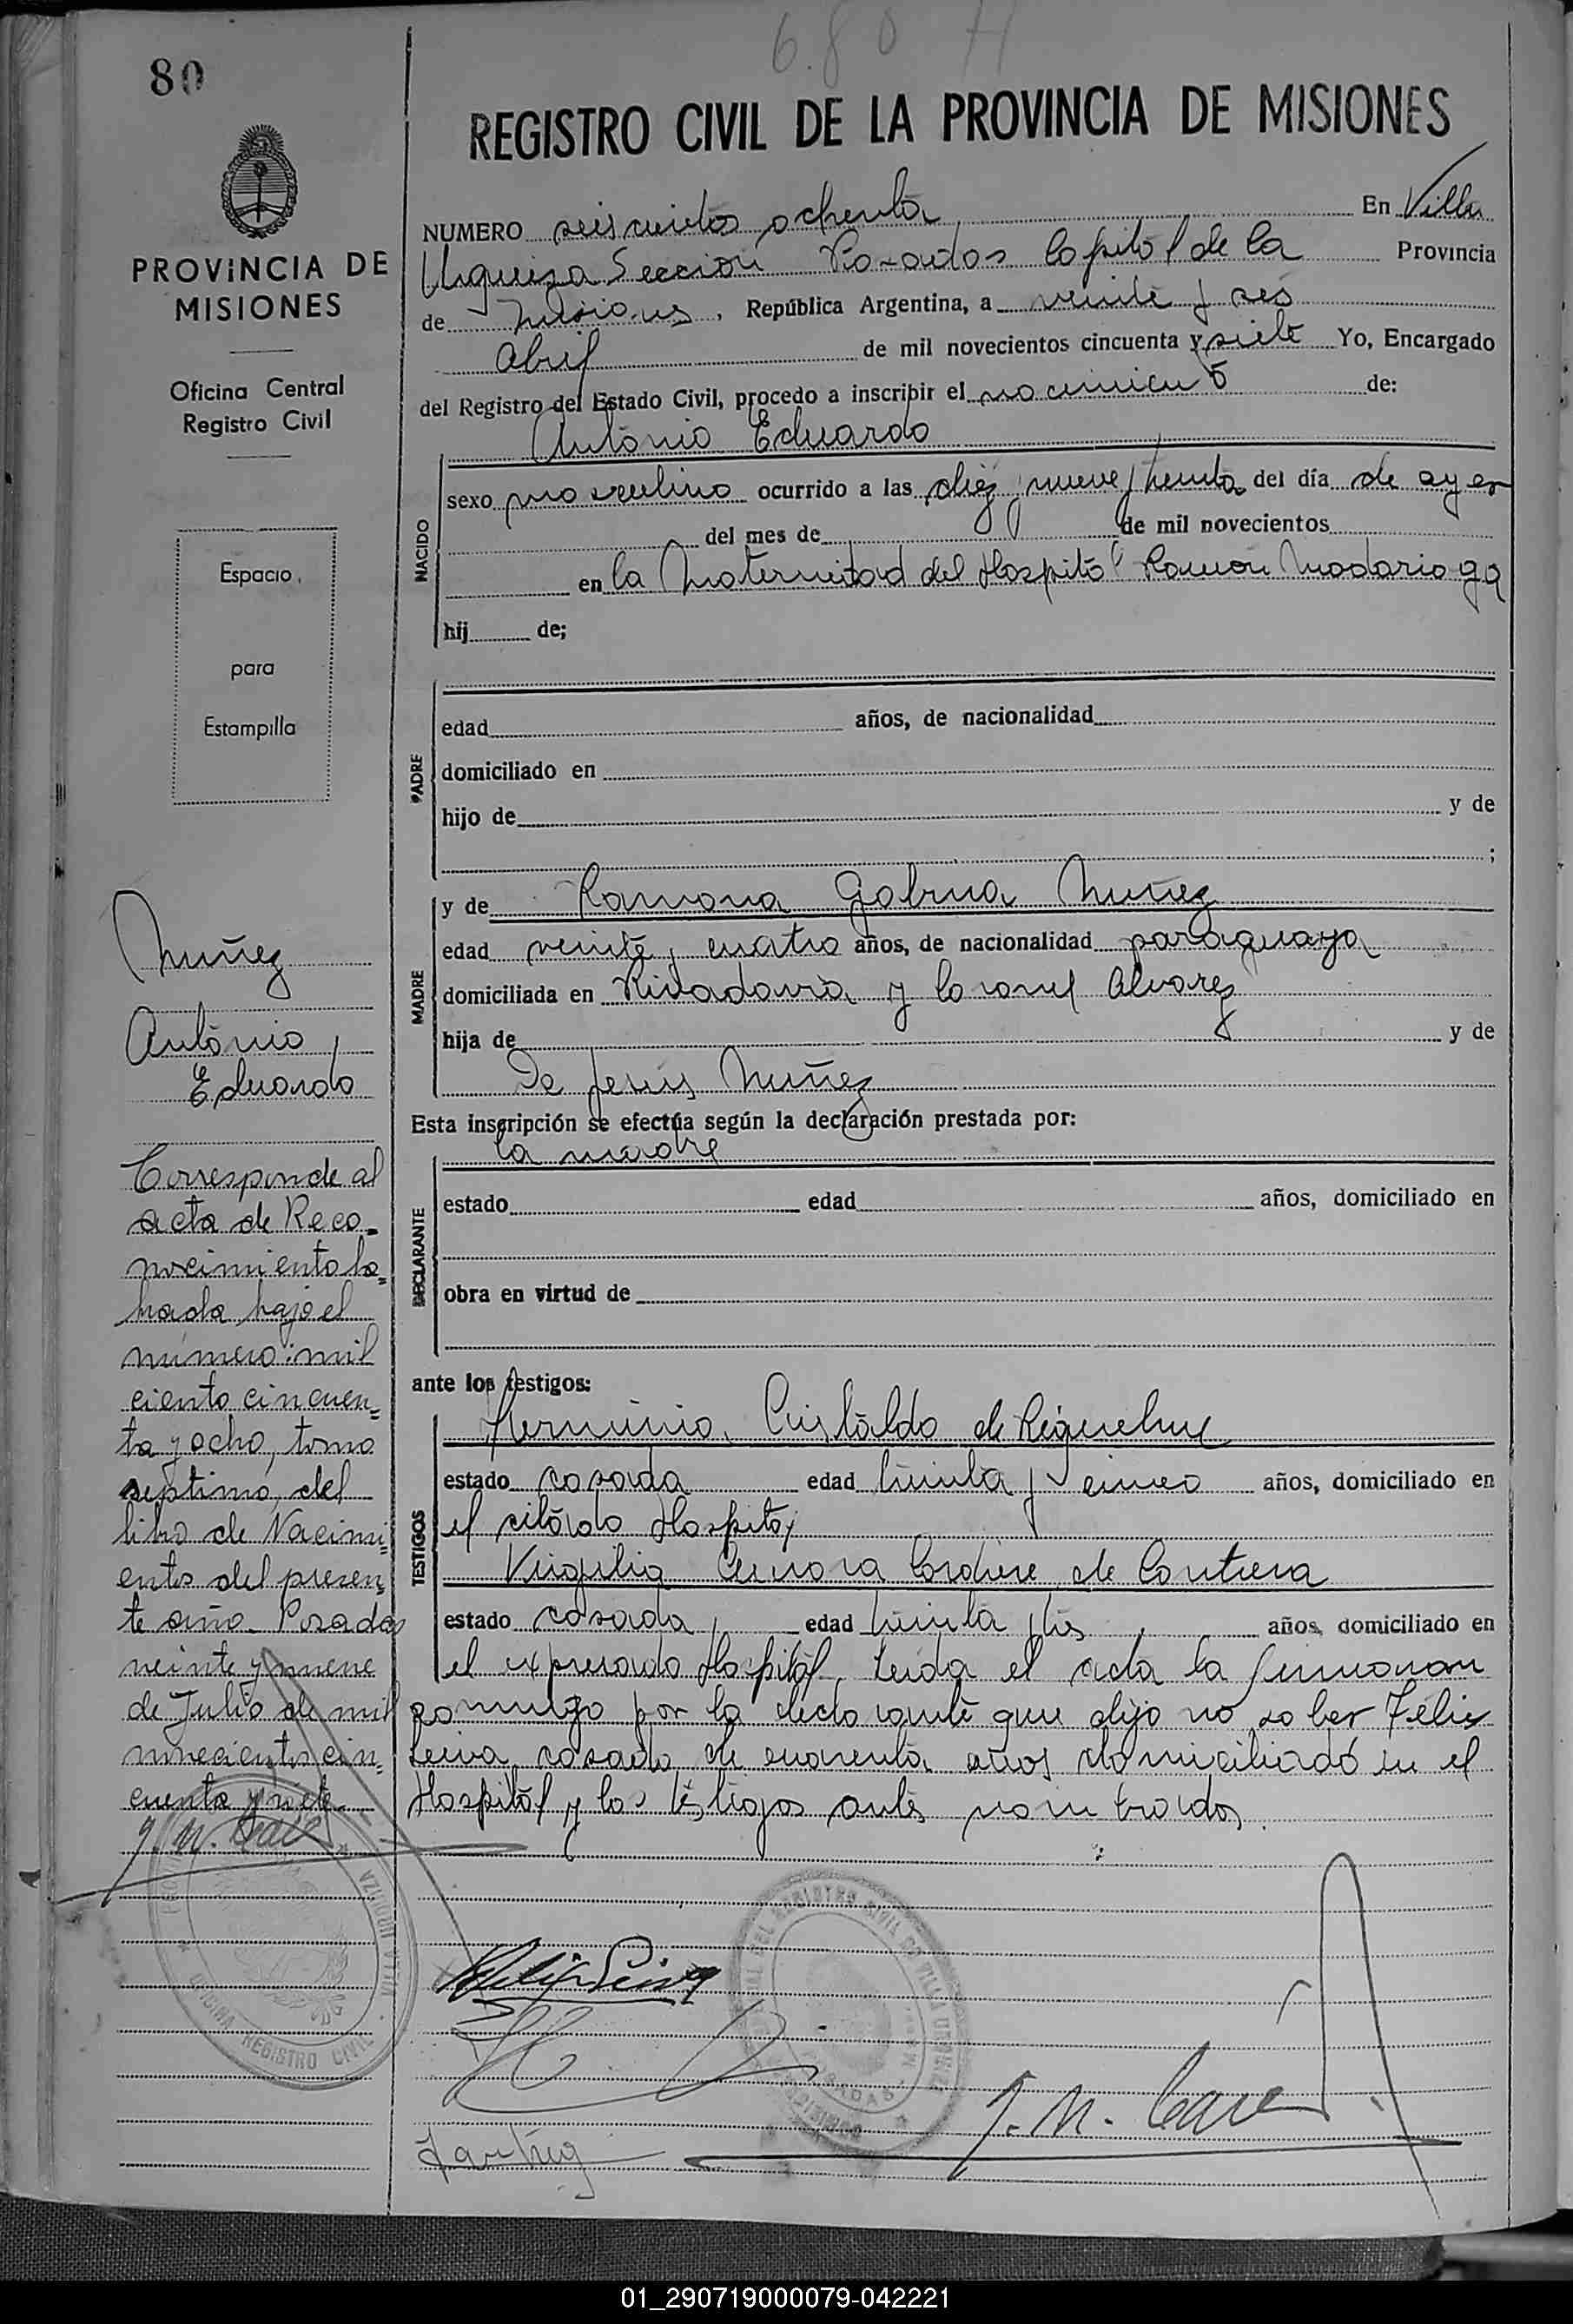 80
680 H
REGISTRO CIVIL DE LA PROVINCIA DE MISIONES
PROVINCIA DE
MISIONES
Oficina Central
Registro Civil
Espacio
para
Estampilla
NUMERO seiscientos ochenta En Villa
Urquiza Sección Posadas Capital de la Provincia
de Misiones, República Argentina, a veinte y seis
Abril de mil novecientos cincuenta y siete Yo, Encargado
del Registro del Estado Civil, procedo a inscribir el nacimiento de:
Antonio Eduardo
NACIDO
sexo masculino ocurrido a las diez y nueve y treinta del día de ayer
del mes de de mil novecientos
en la Maternidad del Hospital Ramón Madariaga
hij de;
PADRE
edad años, de nacionalidad
domiciliado en
hijo de y de
;
MADRE
y de Ramona Gabina Nuñez
edad veinte y cuatro años, de nacionalidad paraguaya
domiciliada en Rivadavia y Coronel Alvarez
hija de y de
De Jesús Nuñez
Esta inscripción se efectúa según la declaración prestada por:
la madre
DECLARANTE
estado edad años, domiciliado en
obra en virtud de
ante los testigos:
TESTIGOS
Herminia Cristaldo de Riquelme
estado casada edad treinta y cinco años, domiciliado en
el citado Hospital
Virgilia Cordiere de Contrera
estado casada edad treinta y tres años, domiciliado en
el expresado Hospital. Leida el acta la firmaron
conmigo por la declarante que dijo no saber Félix
Leiva casado de cuarenta años domiciliado en el
Hospital y los testigos antes nombrados.
Nuñez
Antonio
Eduardo
Corresponde al
acta de Reco-
nocimiento la=
brada bajo el
número: mil
ciento cincuen=
ta y ocho, tomo
septimo, del
libro de Nacimi=
entos del presen=
te año. Posadas
veinte y nueve
de Julio de mil
novecientos cin=
cuenta y siete
OFICINA REGISTRO CIVIL
VILLA URQUIZA
Felix Leiva
REGISTRO CIVIL
POSADAS
01_290719000079-042221